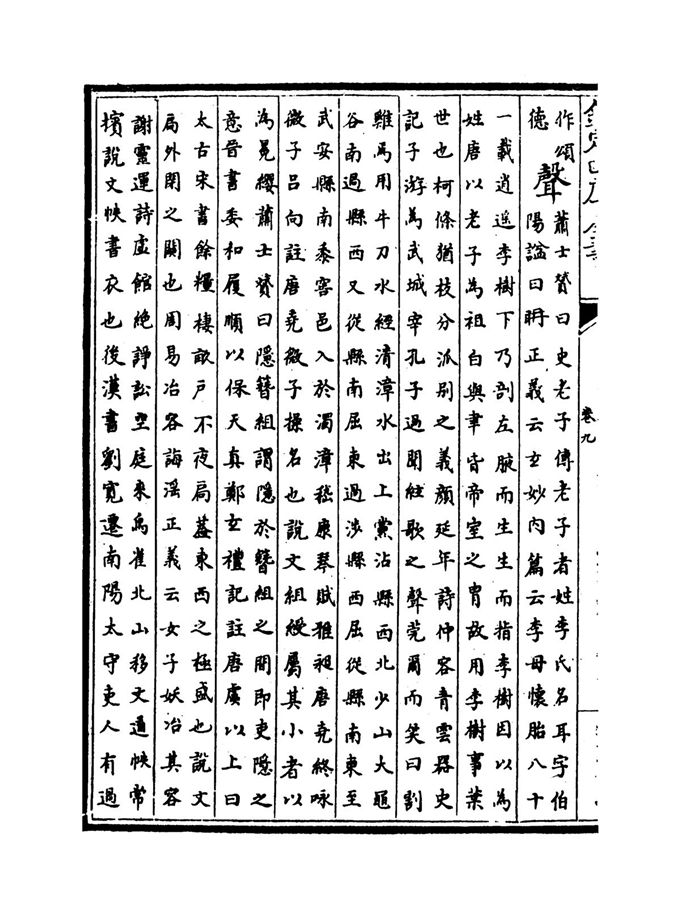 作頌
德
聲
蕭士贇曰史老子傳老子者姓李氏名耳字伯
陽諡曰聃正義云玄妙內篇云李母懷胎八十
一載逍遥李樹下乃剖左腋而生生而指李樹因以為
姓唐以老子為祖白與聿皆帝室之胄故用李樹事葉
世也柯條猶枝分派别之義顔延年詩仲容青雲器史
記子游為武城宰孔子過聞絃歌之聲莞爾而笑曰割
雞焉用牛刀水經清漳水出上黨沾縣西北少山大黽
谷南過縣西又從縣南屈東過涉縣西屈從縣南東至
武安縣南黍窖邑入於濁漳嵇康琴賦雅昶唐堯終咏
微子呂向註唐堯微子操名也說文組綬屬其小者以
為冕纓蕭士贇曰隱簪組謂隱於簪組之間即吏隱之
意晉書委和履順以保天真鄭玄禮記註唐虞以上曰
太古宋書餘糧棲畝戶不夜扃蓋東西之極盛也說文
扃外閉之關也周易冶容誨淫正義云女子妖冶其容
謝靈運詩虛館絶諍訟空庭来鳥雀北山移文道帙常
擯說文帙書衣也後漢書劉寛遷南陽太守吏人有過
卷九